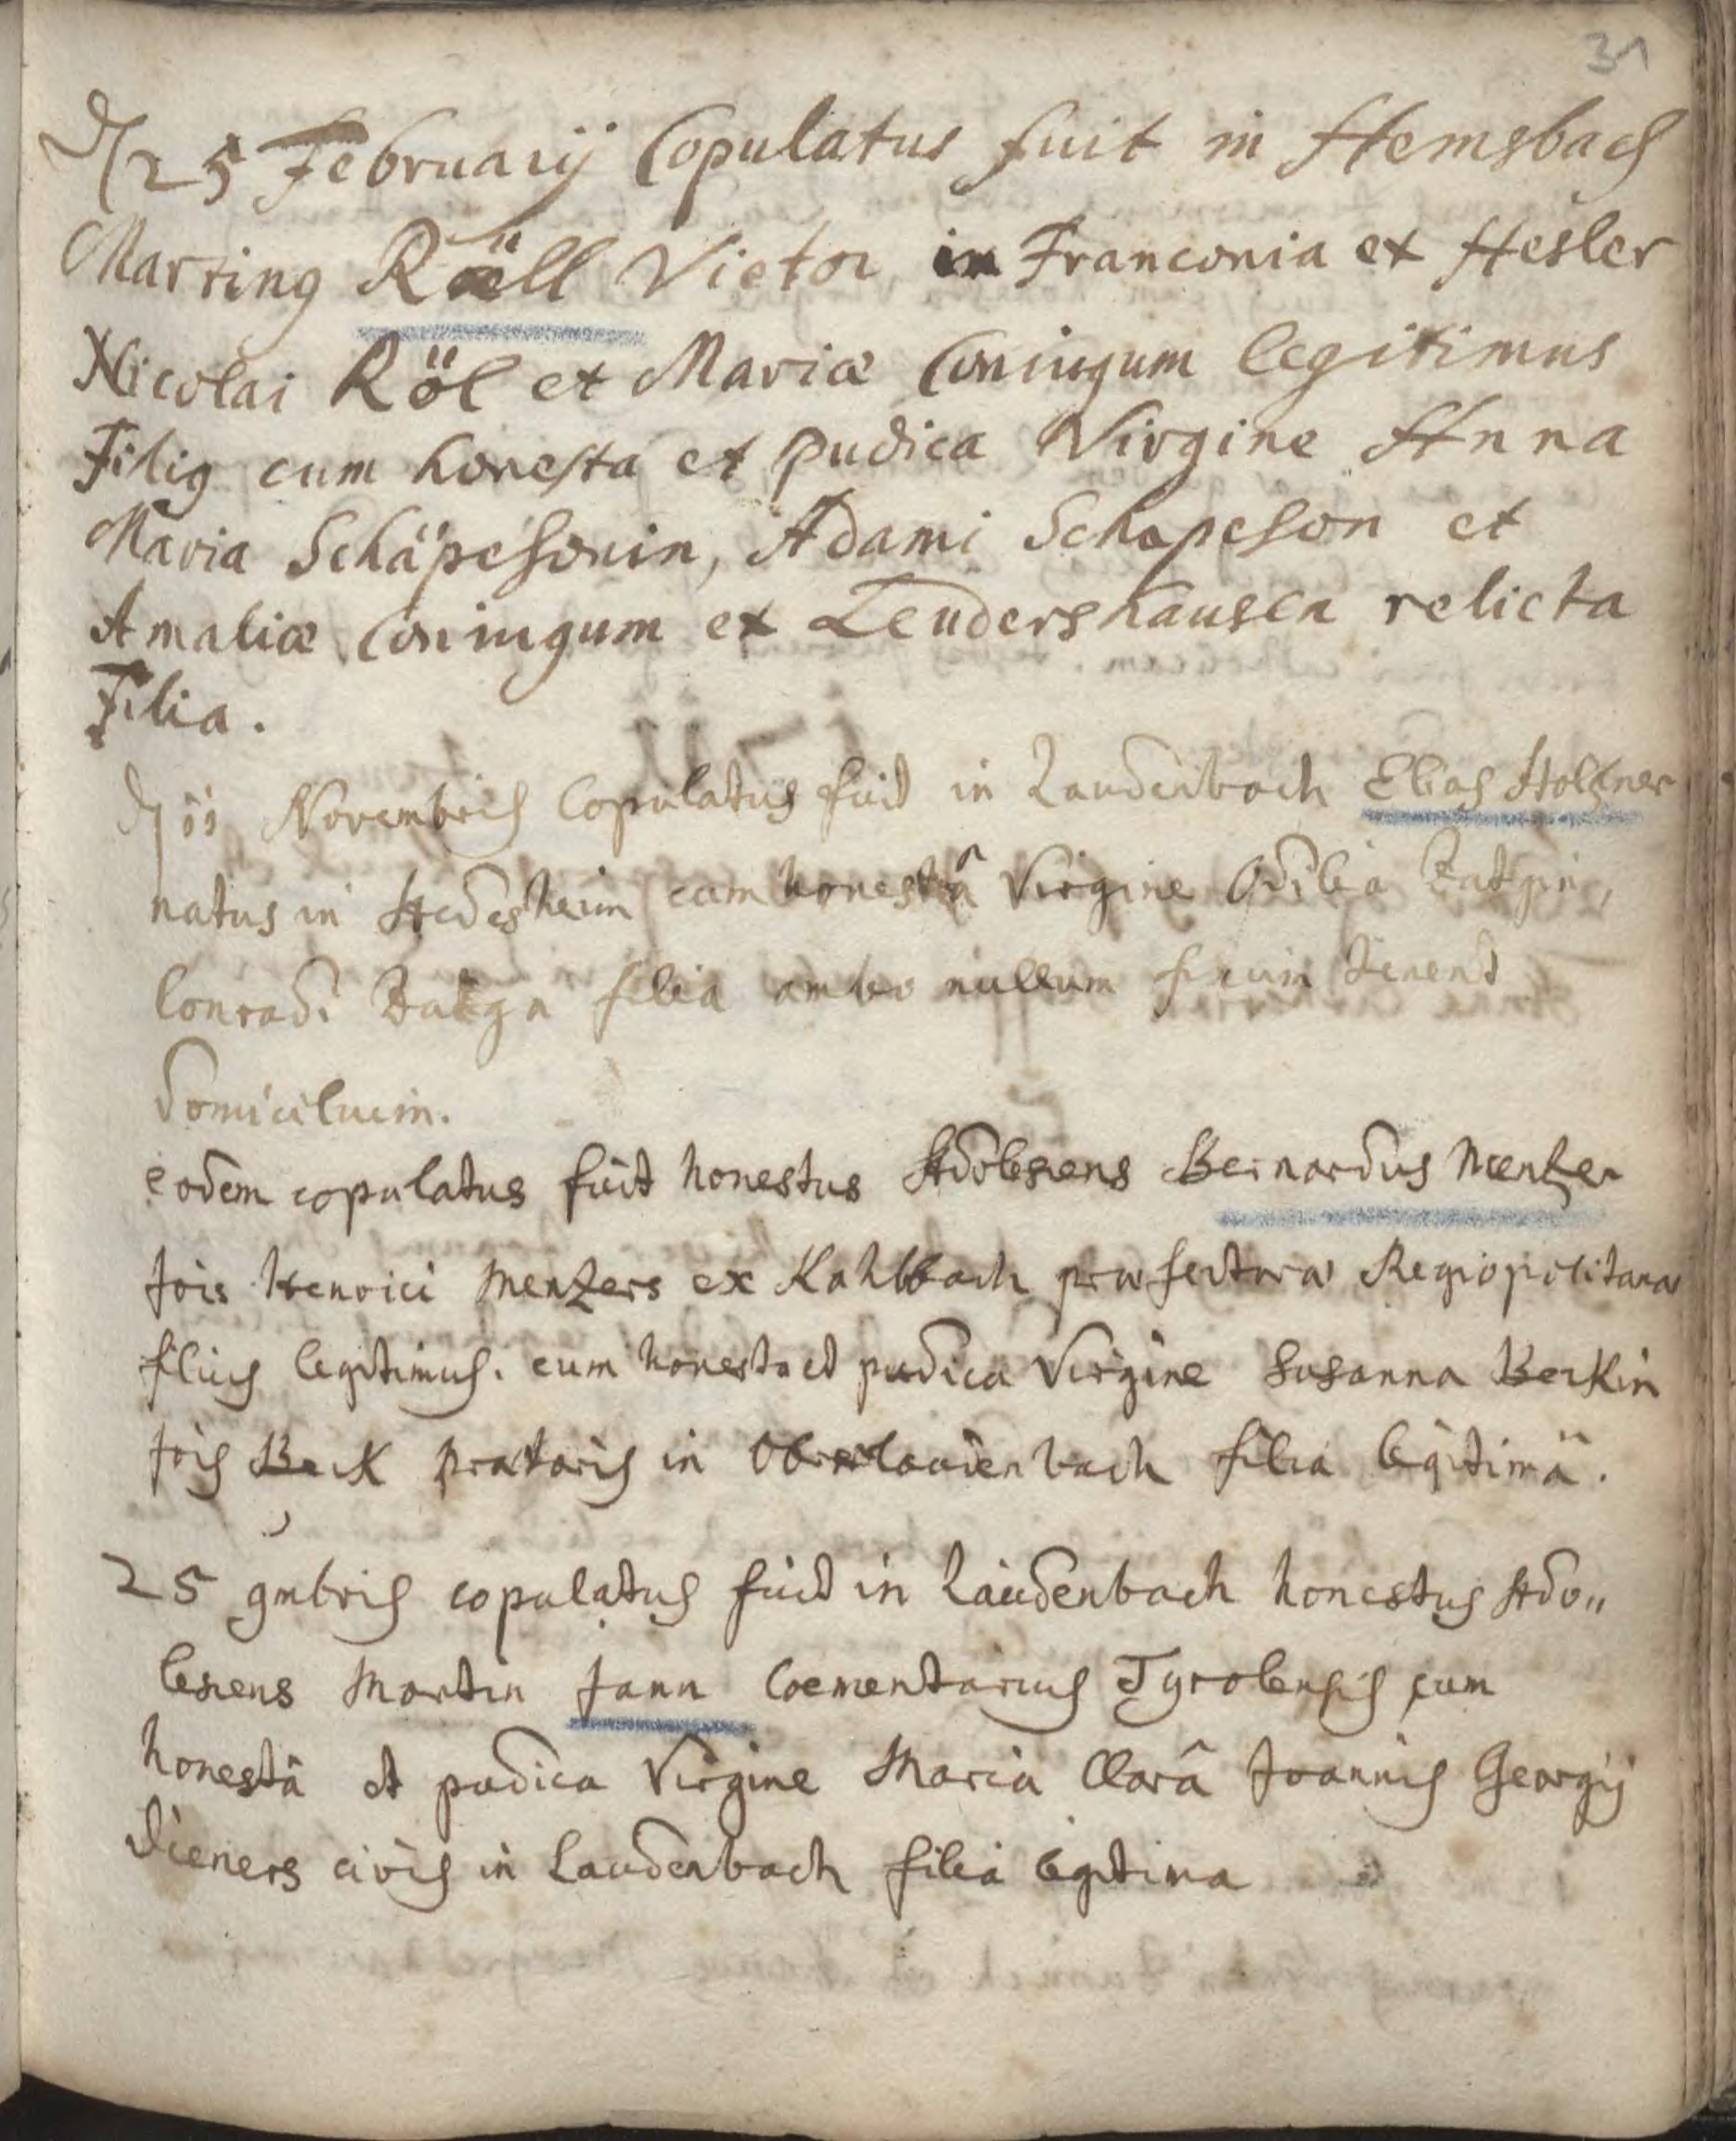 31
25 Februarij Copulatus fuit in Hemsbach
Martinus Röell Vietor in Franconia ex Hesler
Nicolai Röl et Mariæ Coniugum legitimus
Filius cum honesta et pudica Virgine Anna
Maria Schäpesonin, Adami Schapeson et
Amaliæ Coniugum ex Leudershausen relicta
Filia.
11 Novembris Copulatus fuit in Laudenbach Elias Holtzner
natus in Hedesheim cum honestâ Virgine Odilia
Conradi filia ambo nullum tenent
domicilium.
eodem copulatus fuit honestus Adolescens Bernardus Mentzer
Jois Henrici Mentzers ex Kahlbach præfectura Regiopolitana
filius legitimus. cum honesta et pudica Virgine Susanna Beckin
Jois Beck prætoris in Oberlaudenbach filia legitimä.
25 9mbris copulatus fuit in Laudenbach honestus Ado„
lescens Martin Jann Coementarius Tyrolensis cum
honestâ et pudica Virgine Maria Clarâ Joannis Georgij
Dieners civis in Laudenbach filia legitima